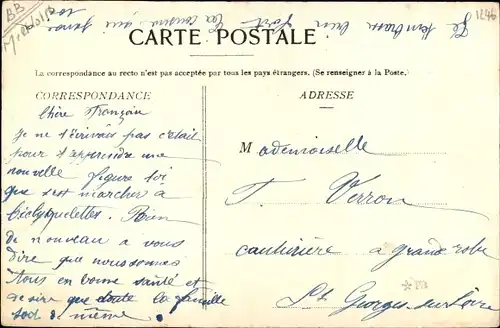 BB
1246
Je t'embrasse bien fort Ta cousine qui
CARTE POSTALE
La correspondance au recto n'est pas acceptée par tous les pays étrangers. (Se renseigner à la Poste.)
CORRESPONDANCE
ADRESSE
Chère Françoin
je ne t'écrivais pas c'était
pour t'apprendre une
nouvelle figure toi
que s'est marcher à
Bichysquelettes. Rien
de nouveau a vous
dire que nous somes
tous en bonne santé et
désire que toute la famille
sod de même.
Mademoiselle
F. Verron
couturière a grand robe
St Georges sur Loire